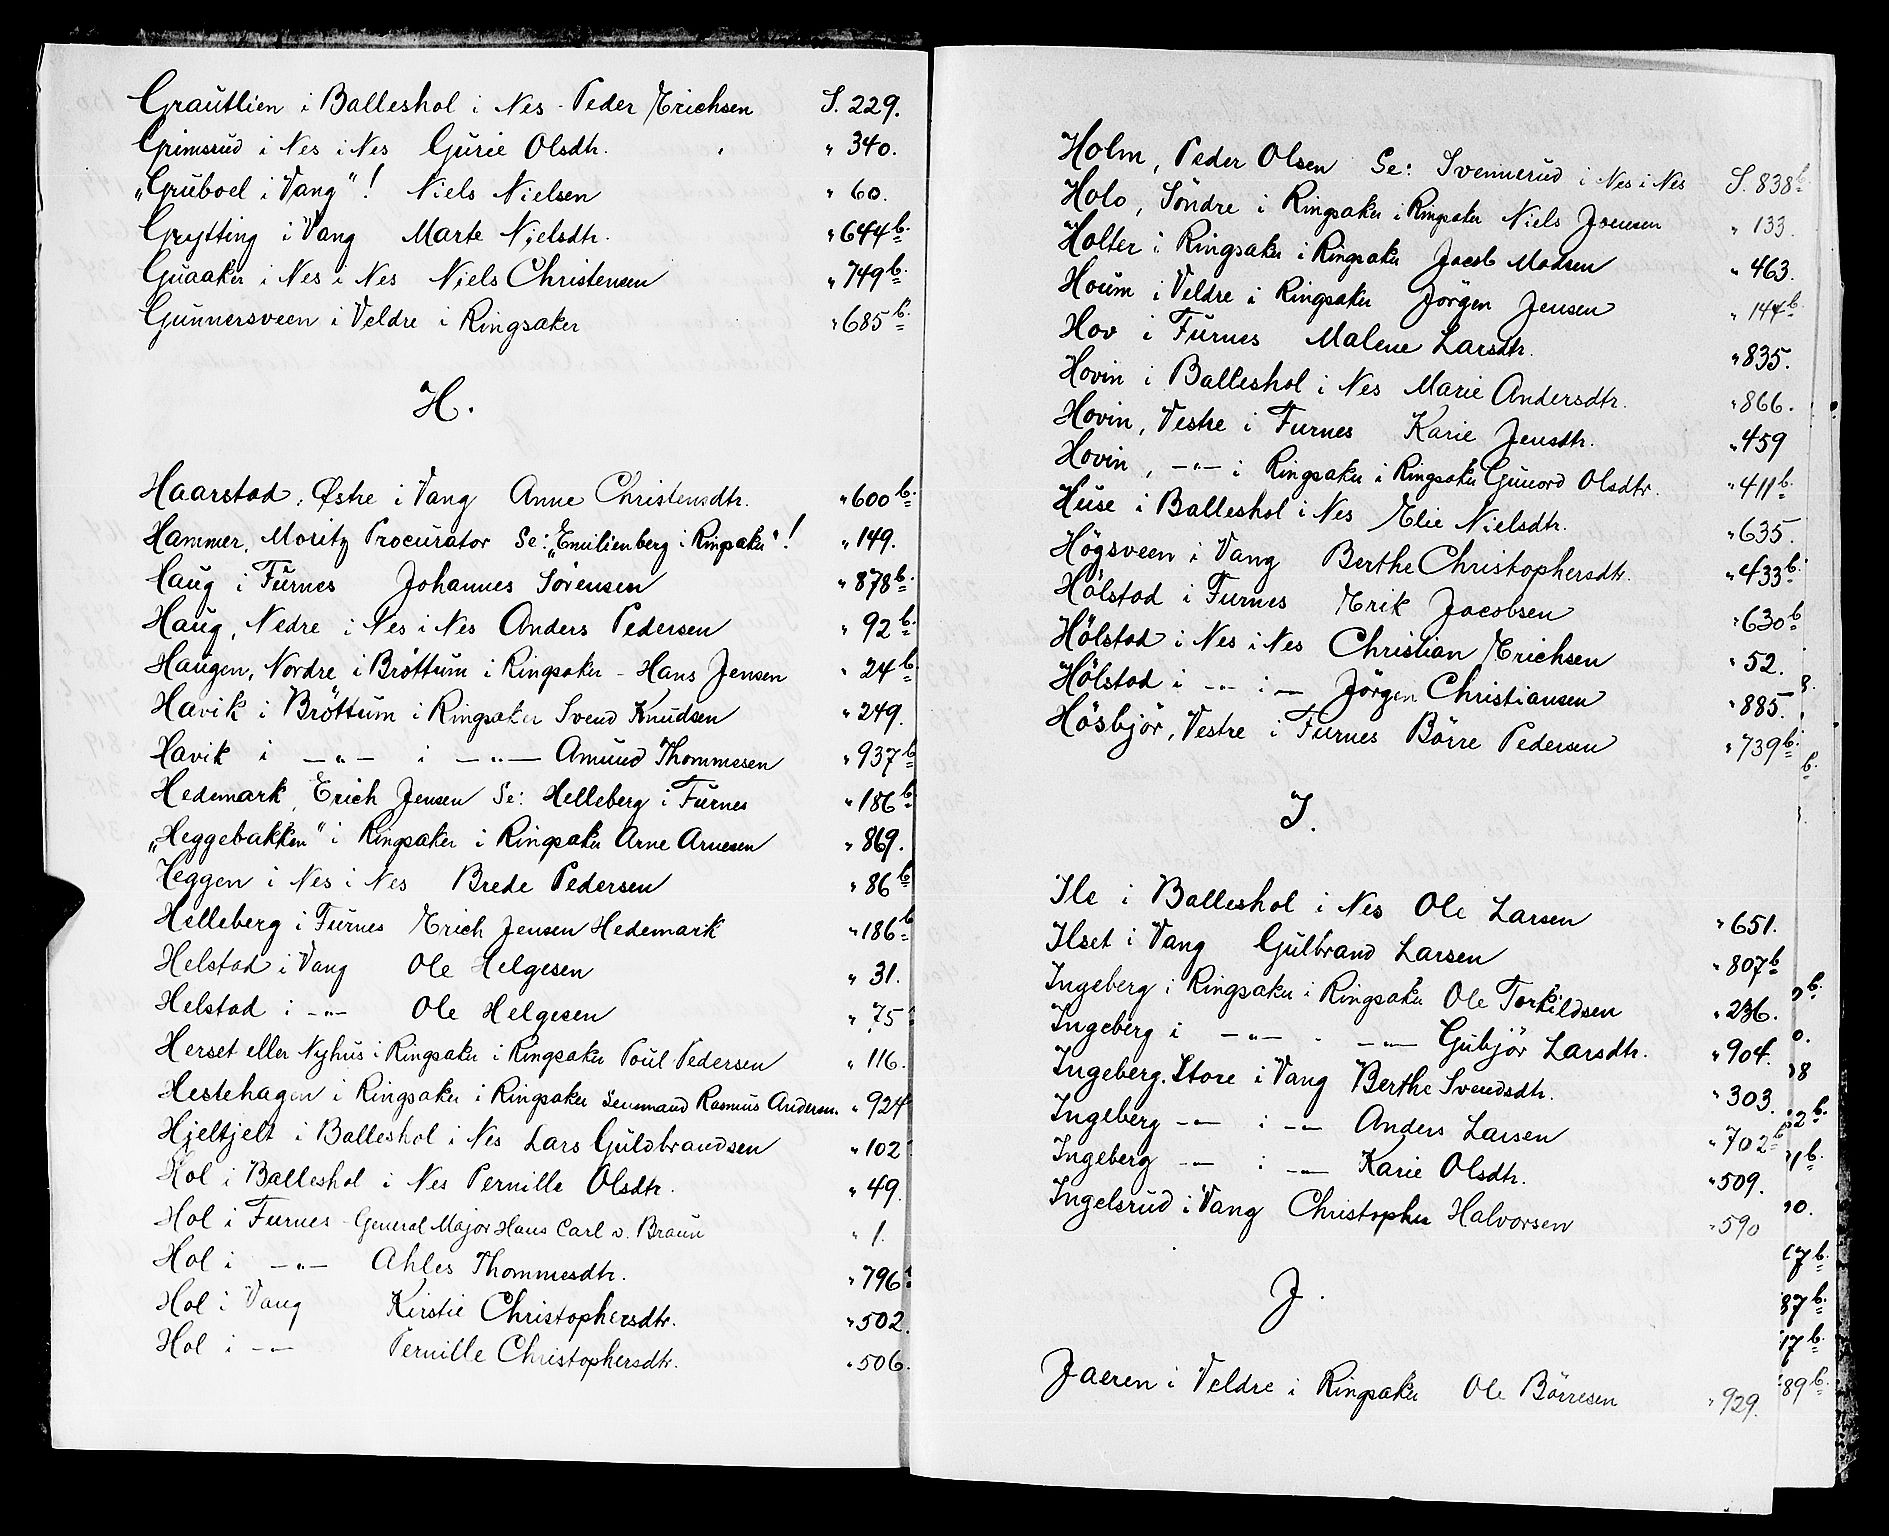 Grautlien i Balleshol i Nes - Peder Erichsen S. 229.
Grimsrud i Nes i Nes Gurie Olsdtr. " 340.
"Gruboel i Vang"! Niels Nielsen " 60.
Grytting i Vang Marte Nielsdtr. " 644 b.
Guaaker i Nes i Nes Niels Christensen " 749 b.
Gunnersveen i Veldre i Ringsaker " 685 b.
H.
Haarstad, Østre i Vang Anne Christensdtr. " 600 b.
Hammer, Moritz Procurator Se: "Emilienberg i Ringsaker"! " 149.
Haug i Furnes Johannes Sörensen " 878 b.
Haug, Nedre i Nes i Nes Anders Pedersen " 92 b.
Haugen, Nordre i Bröttum i Ringsaker - Hans Jensen " 24 b
Havik i Bröttum i Ringsaker Svend Knudsen " 249.
Havik i — " — i — " — Amund Thommesen " 937 b
Hedemark, Erich Jensen Se: Helleberg i Furnes " 186 b.
"Heggebakken" i Ringsaker i Ringsaker Arne Arnesen " 869.
Heggen i Nes i Nes Brede Pedersen " 86 b
Helleberg i Furnes Erich Jensen Hedemark " 186 b
Helstad i Vang Ole Helgesen " 31.
Helstad i - " - Ole Helgesen " 75
Herset eller Nyhus i Ringsaker i Ringsaker Poul Pedersen " 116.
Hestehagen i Ringsaker i Ringsaker Lensmand Rasmus Andersen. " 924
Hjeltjelt i Balleshol i Nes Lars Guldbrandsen " 102
Hol i Balleshol i Nes Pernille Olsdtr. " 49.
Hol i Furnes - General Major Hans Carl v. Braun " 1.
Hol i — " — Ahles Thommesdtr. " 796
Hol i Vang Kirstie Christophersdtr. " 502.
Hol i - " - Pernille Christophersdtr. " 506.
Holm, Peder Olsen Se: Svennerud i Nes i Nes S. 838 b.
Holo, Söndre i Ringsaker i Ringsaker Niels Joensen " 133.
Holter i Ringsaker i Ringsaker Jacob Madsen " 463.
Houm i Veldre i Ringsaker Jörgen Jensen " 144 b.
Hov i Furnes Malene Larsdtr. " 835.
Hovin i Balleshol i Nes Marie Andersdtr. " 866.
Hovin, Vestre i Furnes Karie Jensdtr. " 459
Hovin, — " — i Ringsaker i Ringsaker Gunord Olsdtr. " 411 b.
Huse i Balleshol i Nes Elie Nielsdtr. " 635.
Högsveen i Vang Berthe Christophersdtr. " 433 b.
Hölstad i Furnes Erik Jacobsen " 630 b
Hölstad i Nes i Nes Christian Erichsen " 52.
Hölstad i - " - i — Jörgen Christiansen " 885.
Hösbjör, Vestre i Furnes Börre Pedersen " 739 b.
I.
Ile i Balleshol i Nes Ole Larsen " 651.
Ilset i Vang Gulbrand Larsen " 807 b
Ingeberg i Ringsaker i Ringsaker Ole Torkildsen " 236.
Ingeberg i — " — - — " — Gubjör Larsdtr. " 904.
Ingeberg. Store i Vang Berthe Svendsdtr. " 303.
Ingeberg - " — i - " — Anders Larsen " 702 b
Ingeberg - " — i - " — Karie Olsdtr. " 509.
Ingelsrud i Vang Christopher Halvorsen " 590
J.
Jaeren i Veldre i Ringsaker Ole Börresen " 929.